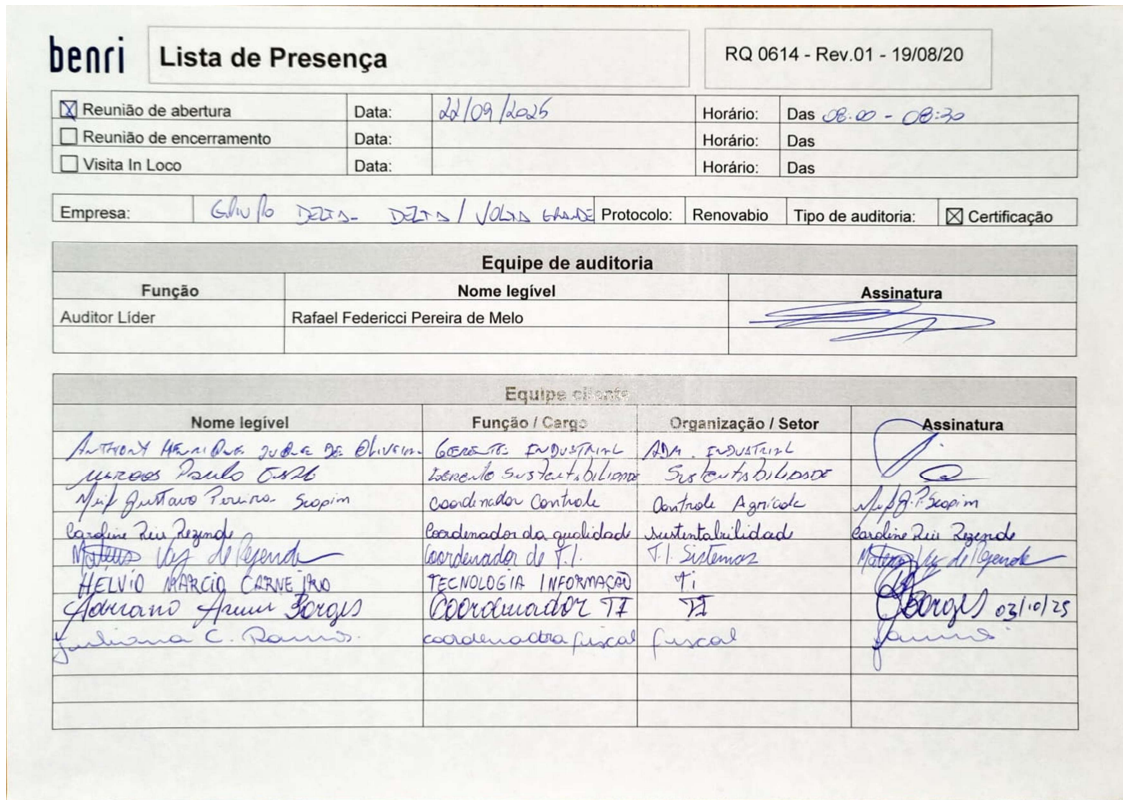 benri Lista de Presença RQ 0614 - Rev.01 - 19/08/20
Reunião de abertura Data: 22/09/2025 Horário: Das 08:00 - 08:30
Reunião de encerramento Data: Horário: Das
Visita In Loco Data: Horário: Das
Empresa: GRUPO DELTA - DELTA / VOLTA GRANDE Protocolo: Renovabio Tipo de auditoria: Certificação
Equipe de auditoria
Função Nome legível Assinatura
Auditor Líder Rafael Federicci Pereira de Melo
Equipe cliente
Nome legível Função / Cargo Organização / Setor Assinatura
ANTHONY HENRIQUE DE OLIVEIRA GERENTE INDUSTRIAL ADM. INDUSTRIAL
Marcos Paulo GERENTE SUSTENTABILIDADE SUSTENTABILIDADE
Gustavo Pereira Scopim Coordenador Controle Controle Agrícola Scopim
Caroline Reis Rezende Coordenadora da qualidade sustentabilidade Caroline Reis Rezende
Mateus Vaz de Rezende Coordenador de T.I. T.I. Sistemas Mateus Vaz de Rezende
HELVIO MARCIO CARNEIRO TECNOLOGIA INFORMAÇÃO Ti
Adriano Borges COORDENADOR TI TI Borges 03/10/25
Juliana C. Ramos. coordenadora fiscal fiscal Ramos